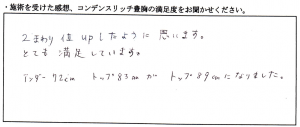 ・施術を受けた感想、コンデンスリッチ豊胸の満足度をお聞かせください。
2まわり位upしたように思います。
とても満足しています。
アンダー72cm トップ83cmがトップ89cmになりました。